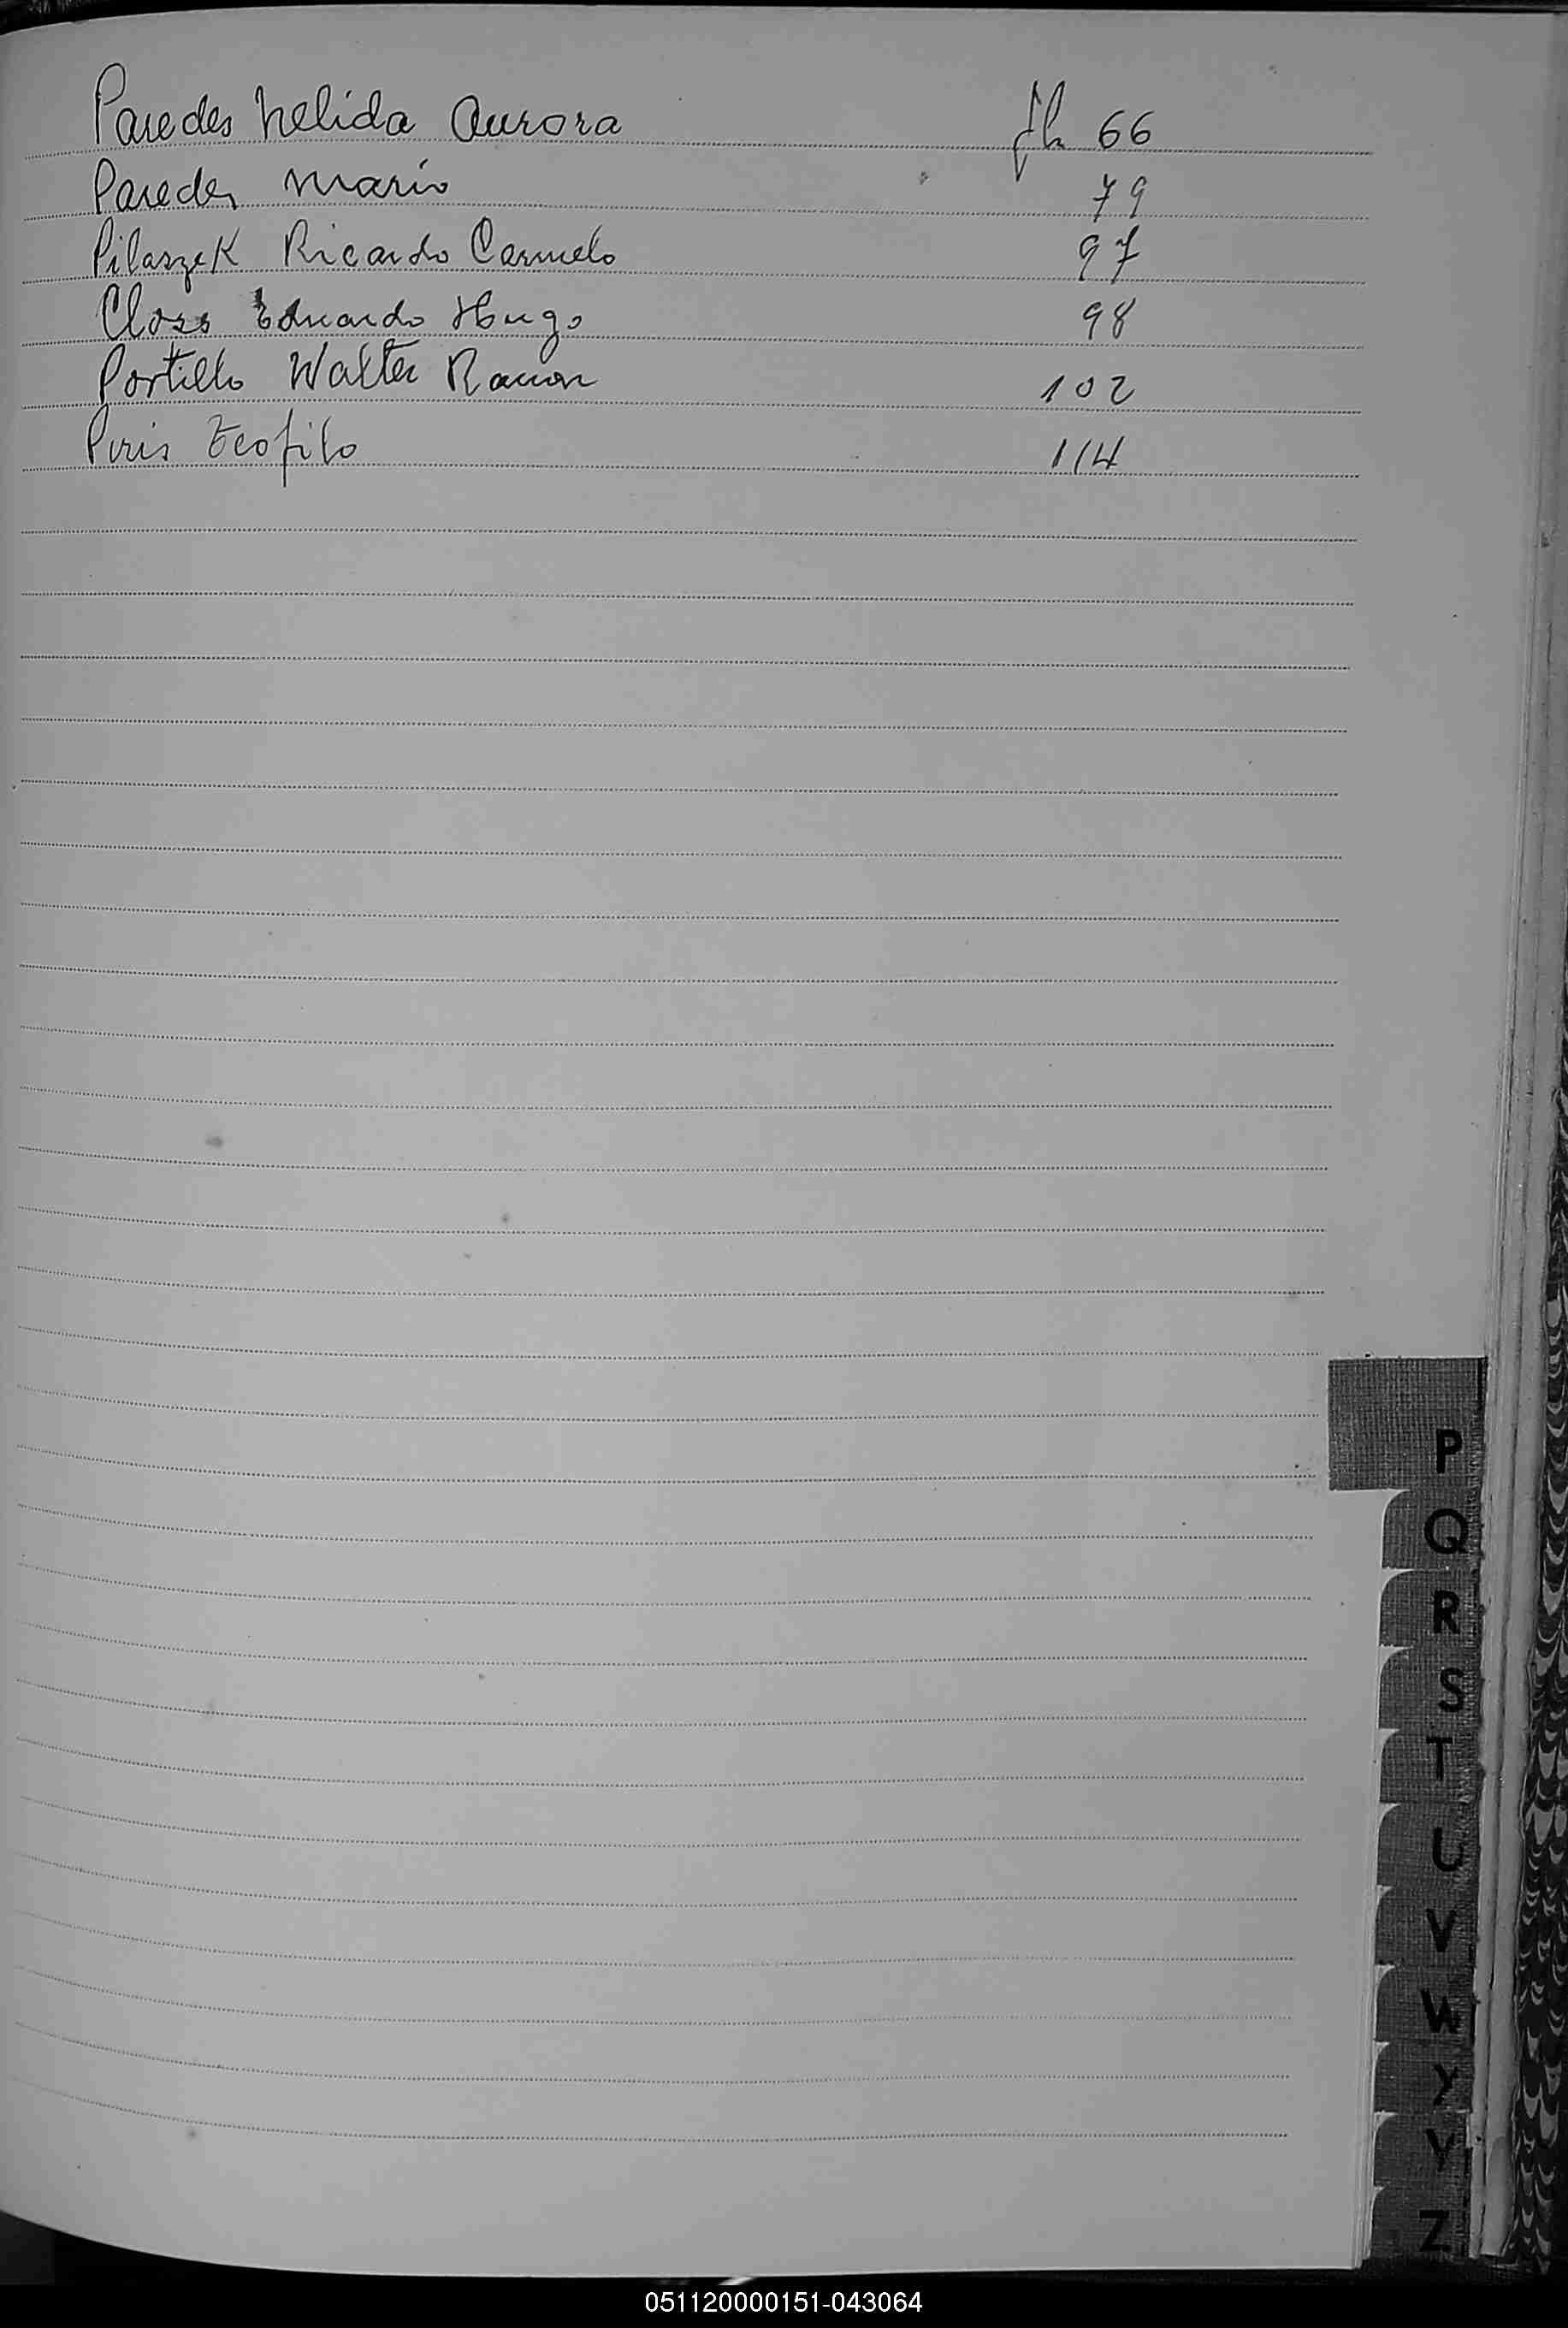 Paredes Nelida Aurora fh 66
Paredes Mario 79
Pilaszek Ricardo Carmelo 97
Closs Eduardo Hugo 98
Portillo Walter Ramon 102
Piris Teofilo 114
P
Q
R
S
T
U
V
W
X
Y
Z
051120000151-043064